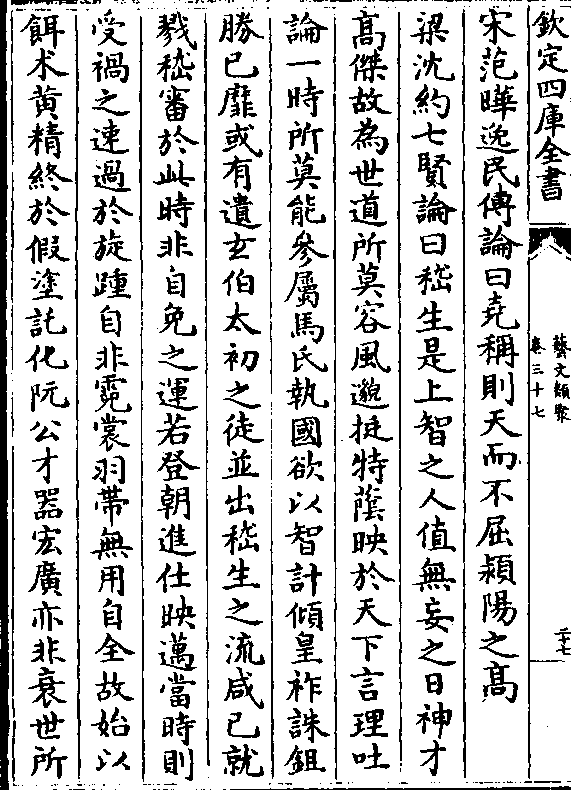 欽定四庫全書
藝文類聚
卷三十七
二十七
宋范曄逸民傳論曰堯稱則天而不屈潁陽之髙
梁沈約七賢論曰嵇生是上智之人值無妄之日神才
髙傑故為世道所莫容風邈挺特蔭映於天下言理吐
論一時所莫能參屬馬氏執國欲以智計傾皇祚誅鉏
勝已靡或有遺玄伯太初之徒並出嵇生之流咸已就
戮嵇審於此時非自免之運若登朝進仕映邁當時則
受禍之速過於旋踵自非霓裳羽帶無用自全故始以
餌术黄精終於假塗託化阮公才器宏廣亦非衰世所